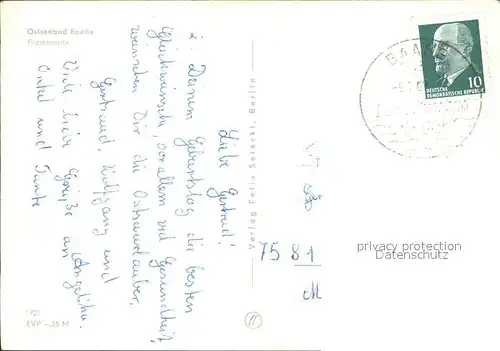 Ostseebad Baabe
Promenade
Liebe Gertrud!
z. Deinem Geburtstag die besten
Glückwünsche, vor allem viel Gesundheit,
wünschen Dir die Ostseeurlauber.
Gertraud, Wolfgang und
Viele liebe Grüße an Angelika.
Onkel und Tante
Verlag Felix Setecki, Berlin
BAABE
10
DEUTSCHE
DEMOKRATISCHE REPUBLIK
7581
privacy protection
Datenschutz
EVP -,25 M